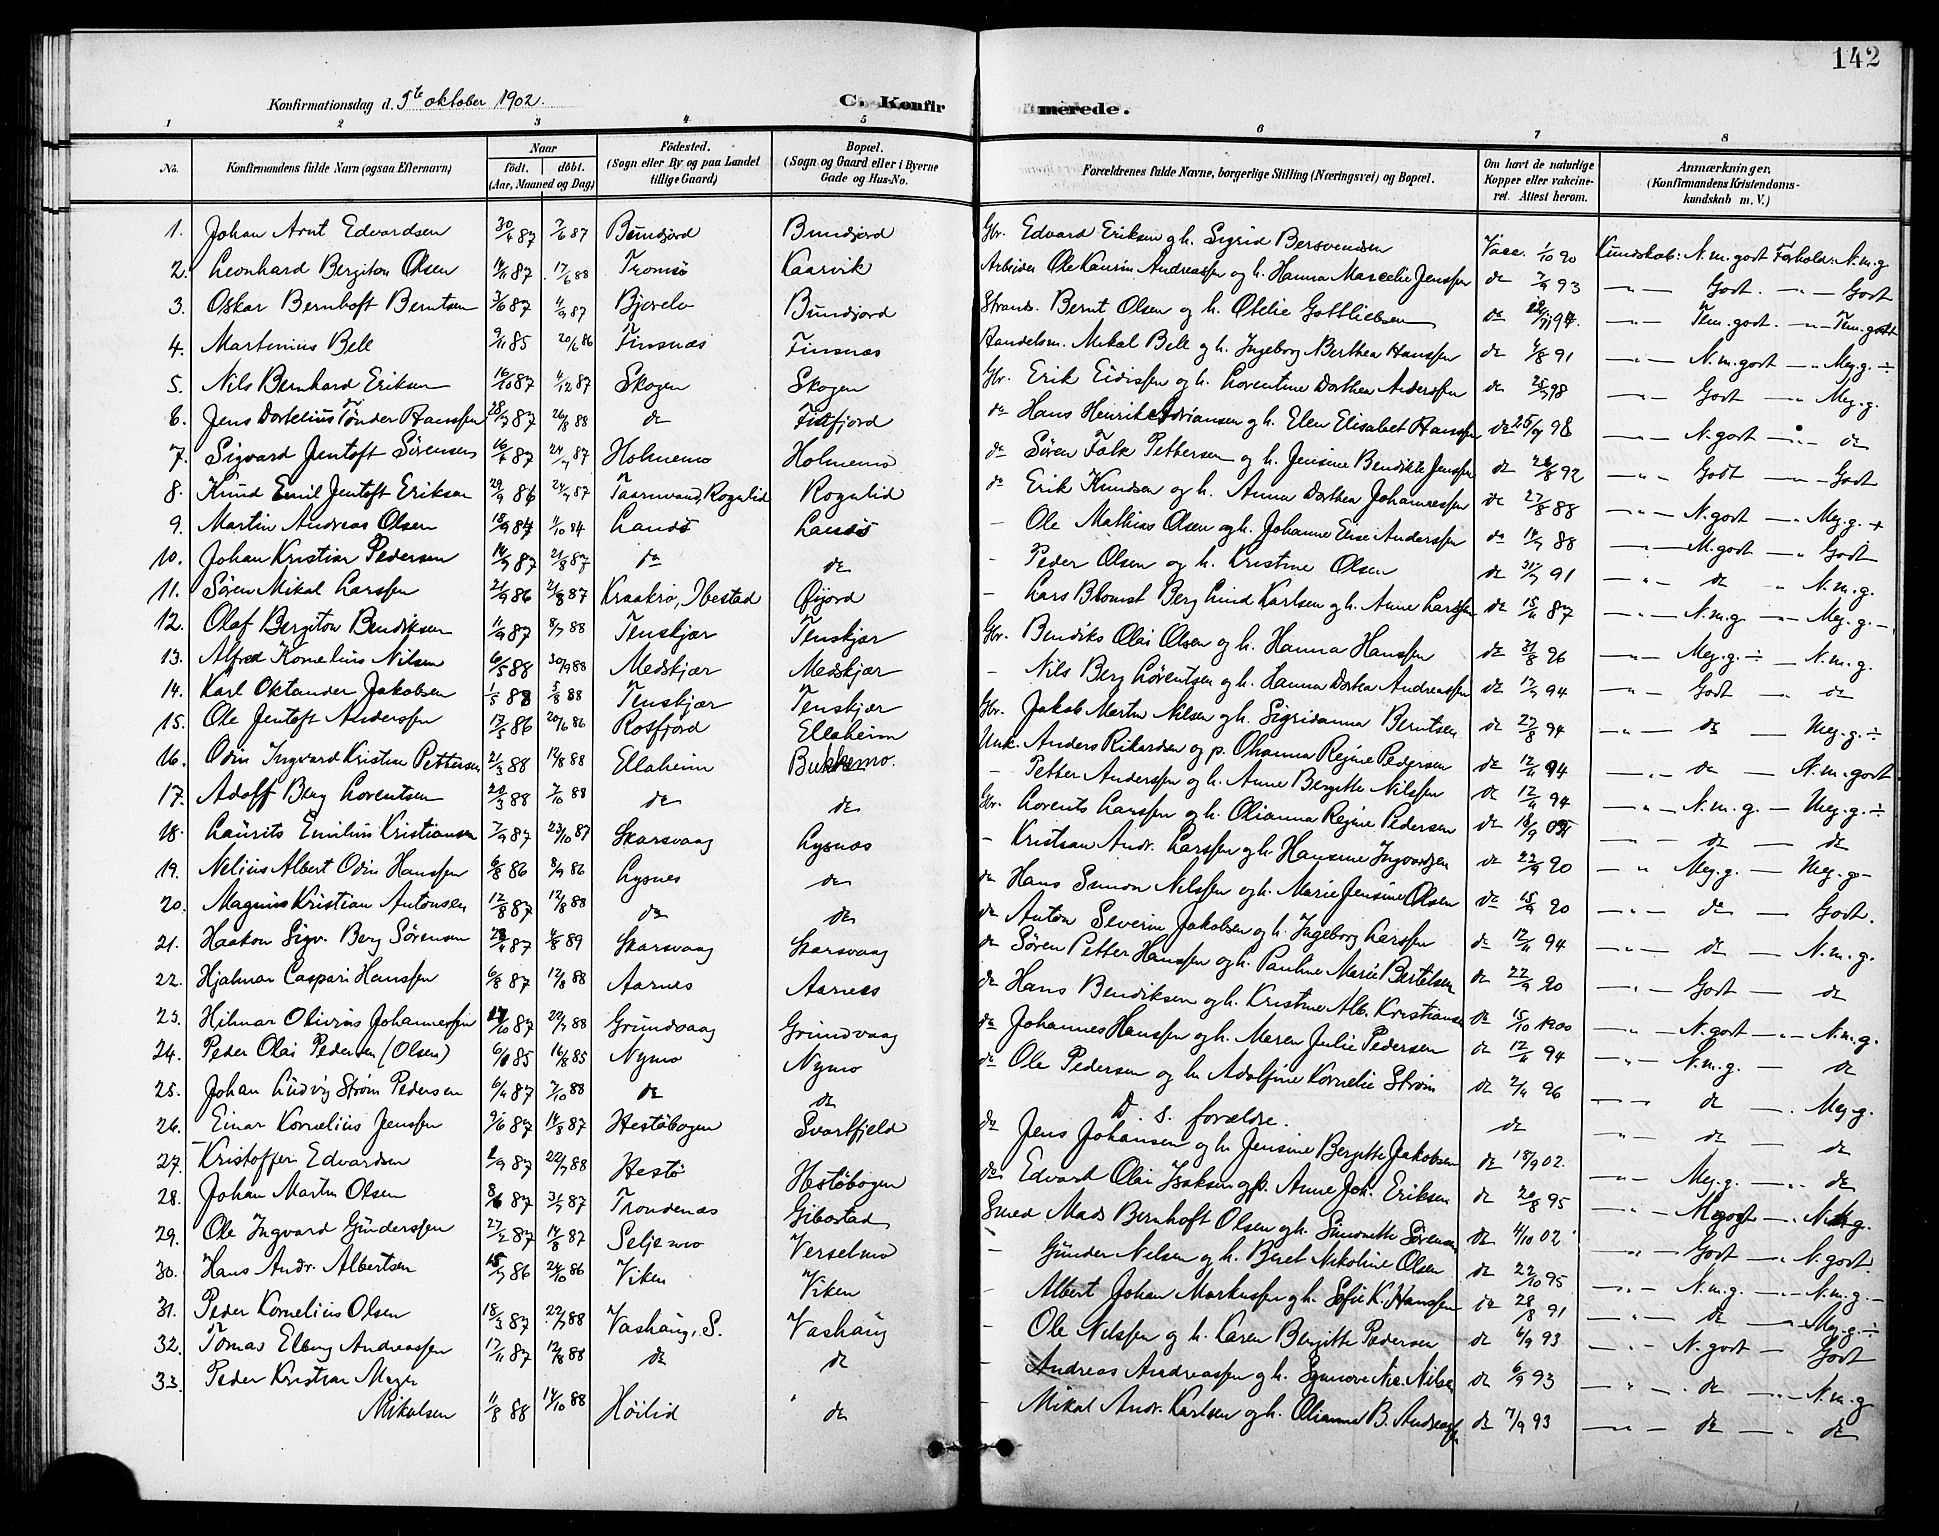 142
Konfirmationsdag d. 5te oktober 1902.
C. Konfirmerede.
1 2 3 4 5 6 7 8
No.
Konfirmandens fulde Navn (ogsaa Efternavn)
Naar
födt. döbt.
(Aar, Maaned og Dag)
Födested.
(Sogn eller By og paa Landet
tillige Gaard)
Bopæl.
(Sogn og Gaard eller i Byerne
Gade og Hus-No.
Forældrenes fulde Navne, borgerlige Stilling (Næringsvei) og Bopæl.
Om havt de naturlige
Kopper eller vakcine-
ret. Attest herom.
Anmærkninger.
(Konfirmandens Kristendoms-
kundskab m. V.)
1. Johan Arnt Edvardsen 30/4 87 7/6 87 Bundjord Bundjord Gbr. Edvard Eriksen og h. Sigrid Bersvendsen Vacc. 1/10 90 Kundskab: N.m.godt Forhold: N.m.g.
2. Leonhard Bergiton Olsen 14/11 87 17/6 88 Tromsö Kaarvik Arbeider Ole Kaurin Andreassen og h. Hanna Marcelie Jenssen do 7/9 93 Godt Godt
3. Oskar Bernhoft Berntsen 3/6 87 4/9 87 Bjorelv Bundjord Strands. Bernt Olsen og h. Otelie Gottliebsen do Tem.godt. Tem.godt
4. Martinius Bell 9/11 85 20/6 86 Finsnæs Finsnæs Handelsm. Mikal Bell og h. Ingeborg Berthea Hanssen do 4/8 91 N.m.godt Meg.g. ÷
5. Nils Bernhard Eriksen 16/10 87 4/12 87 Skogen Skogen Gbr. Erik Eidissen og h. Lorentine Dorthea Anderssen do 25/9 98 Godt Meg.g.
6. Jens Dortelius Tönder Hanssen 28/7 87 26/8 88 do Finfjord do Hans Henrik Adriansen og h. Elen Elisabet Hanssen do 25/9 98 N.godt do
7. Sigvard Jentoft Sörensen 16/4 87 24/7 87 Holmemo Holmemo do Sören Falk Pettersen og h. Jensine Bendikte Jenssen do 28/8 92 Godt Godt
8. Knud Emil Jentoft Eriksen 29/9 86 24/7 87 Taarnvand, Rognlid Rognlid do Erik Knudsen og h. Anna Dorthea Johannessen do 27/8 88 N.godt Meg.g. +
9. Martin Andreas Olsen 18/9 84 4/10 84 Landö Lansö – Ole Mathias Olsen og h. Johanne Elise Anderssen do 14/9 88 M.godt Godt
10. Johan Kristian Pedersen 14/7 87 21/8 87 do do – Peder Olsen og h. Kristine Olsen do 31/7 91 do N.m.g.
11. Sören Mikal Larssen 21/9 86 21/8 87 Kraakrö, Ibestad Öijord – Lars Blomst Berg Lind Karlsen og h. Anne Larssen do 15/11 87 N.m.g. Meg.g. –
12. Olaf Bergiton Bendiksen 11/9 87 8/7 88 Tenskjær Tenskjær Gbr. Bendiks Olai Olsen og h. Hanna Hanssen do 31/8 96 Meg.g. ÷ N.m.g.
13. Alfred Kornelius Nilsen 6/5 88 30/9 88 Medskjær Medskjær – Nils Berg Lörentsen og h. Hanna Dorthea Andreassen do 17/9 94 Godt do
14. Karl Oktander Jakobsen 1/5 88 5/8 88 Tenskjær Tenskjær Gbr. Jakob Martin Nilsen og h. Sigridanna Berntsen do 27/8 94 do Meg.g. ÷
15. Ole Jentoft Anderssen 17/5 86 20/6 86 Rosfjord Ellaheim Unk. Anders Rikardsen og p. Ohanna Regine Pedersen do 12/11 94 do N.m.godt
16. Odin Ingvard Kristian Pettersen 21/3 88 12/8 88 Ellaheim Bukkemo – Petter Anderssen og h. Anne Bergitte Nilssen do 12/11 94 N.m.g. Meg.g. ÷
17. Adolf Berg Lorentsen 20/3 88 7/10 88 do do Gbr. Lorents Larssen og h. Olianna Regine Pedersen do 18/9 do do
18. Laurits Emilius Kristiansen 7/9 87 23/10 87 Skarsvaag Lysnæs – Kristian Andr. Larssen og h. Hansine Ingvardsen do 22/9 90 Meg.g. Meg.g. –
19. Nelius Albert Odin Hanssen 6/8 86 8/9 86 Lysnes do do Hans Simon Nilssen og h. Marie Jensine Olsen do 15/9 90 do Godt.
20. Magnus Kristian Antonsen 12/8 87 12/8 88 do do do Anton Severin Jakobsen og h. Ingeborg Larssen do 12/11 94 do N.m.g.
21. Haakon Sigv. Berg Sörensen 4/8 89 Skarsvaag Skarsvaag do Sören Petter Hanssen og h. Pauline Marie Bertelsen do 22/9 90 Godt do
22. Hjalmar Caspari Hanssen 6/8 87 12/8 88 Aarnes Aarnees do Hans Bendiksen og h. Kristine Alb. Kristiansen do 15/10 1900 N.godt N.m.g.
23. Hilmar Olivius Johannessen 87 22/7 88 Grundvaag Grundvaag do Johannes Hanssen og h. Maren Julie Pedersen do 12/11 94 N.m.g. do
24. Peder Olai Pedersen (Olsen) 6/6 85 16/8 85 Nymo Nymo do Ole Pedersen og h. Adolfine Kornelie Ström do 2/9 96 do Meg.g.
25. Johan Ludvig Ström Pedersen 6/4 87 7/10 88 do do D. s. forældre. do do do
26. Einar Kornelius Jenssen 9/6 87 14/8 87 Hestöbogen Svartfjeld do Jens Johansen og h. Jensine Bergitte Jakobsen do 18/9 02. Meg.g. do
27. Kristoffer Edvardsen 87 22/7 88 Hestö Hestöbogen do Edvard Olai Isaksen og p. Anne Joh. Eriksen do 20/8 95 M.godt N.m.g.
28. Johan Martin Olsen 8/6 87 31/7 87 Trondenæs Gibostad Smed Mads Bernhoft Olsen og h. Simonette Sörensen do 4/10 02. Godt N.godt.
29. Ole Ingvard Gunderssen 27/2 87 14/8 87 Seljemo Verselmo – Gunder Nilsen og h. Beret Nikoline Olsen do 22/10 95 N.m.g. N.m.g. –
30. Hans Andr. Albertsen 15/7 86 24/10 86 Viken Viken – Albert Johan Markussen og h. Sofie K. Hanssen do 28/8 91 do Meg.g. ÷
31. Peder Kornelius Olsen 18/3 87 22/7 88 Vashaug, S. Vashaug – Ole Nilssen og h. Karen Bergitte Pedersen do 6/9 93 N.godt Godt
32. Tomas Elberg Andreassen 17/11 87 12/8 88 do do – Andreas Andreassen og h. Synnove Nic. Nilsen do 6/9 93 do N.m.g
33. Peder Kristian Meyer
Mikalsen 11/8 88 14/10 88 Höilid do – Mikal Andr. Karlsen og h. Olianna B. Andreassen do 7/9 93 do do